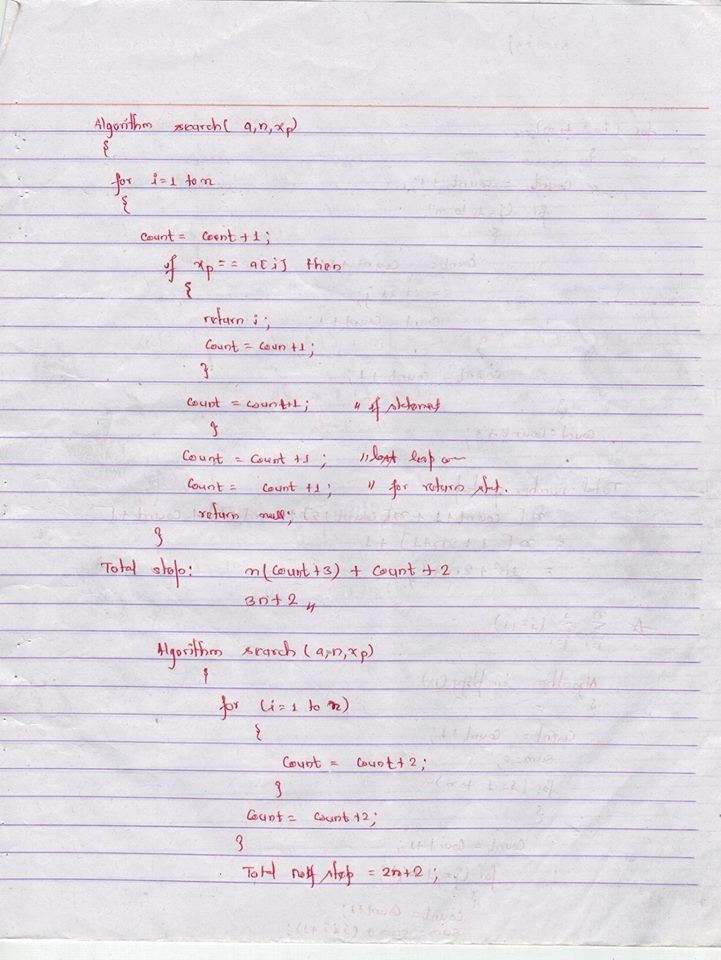 Algorithm search( a,n,xp)
{
for i=1 to n
{
count = count +1;
if xp == a[i] then
{
return i;
count = coun +1;
}
count = count+1; // if statement
}
count = count +1; // last loop
count = count +1; // for return stat.
return null;
}
Total step: n(count+3) + count + 2
3n+2 //
Algorithm search (a,n,xp)
{
for (i=1 to n)
{
count = count+2;
}
count = count+2;
}
Total step = 2n+2;